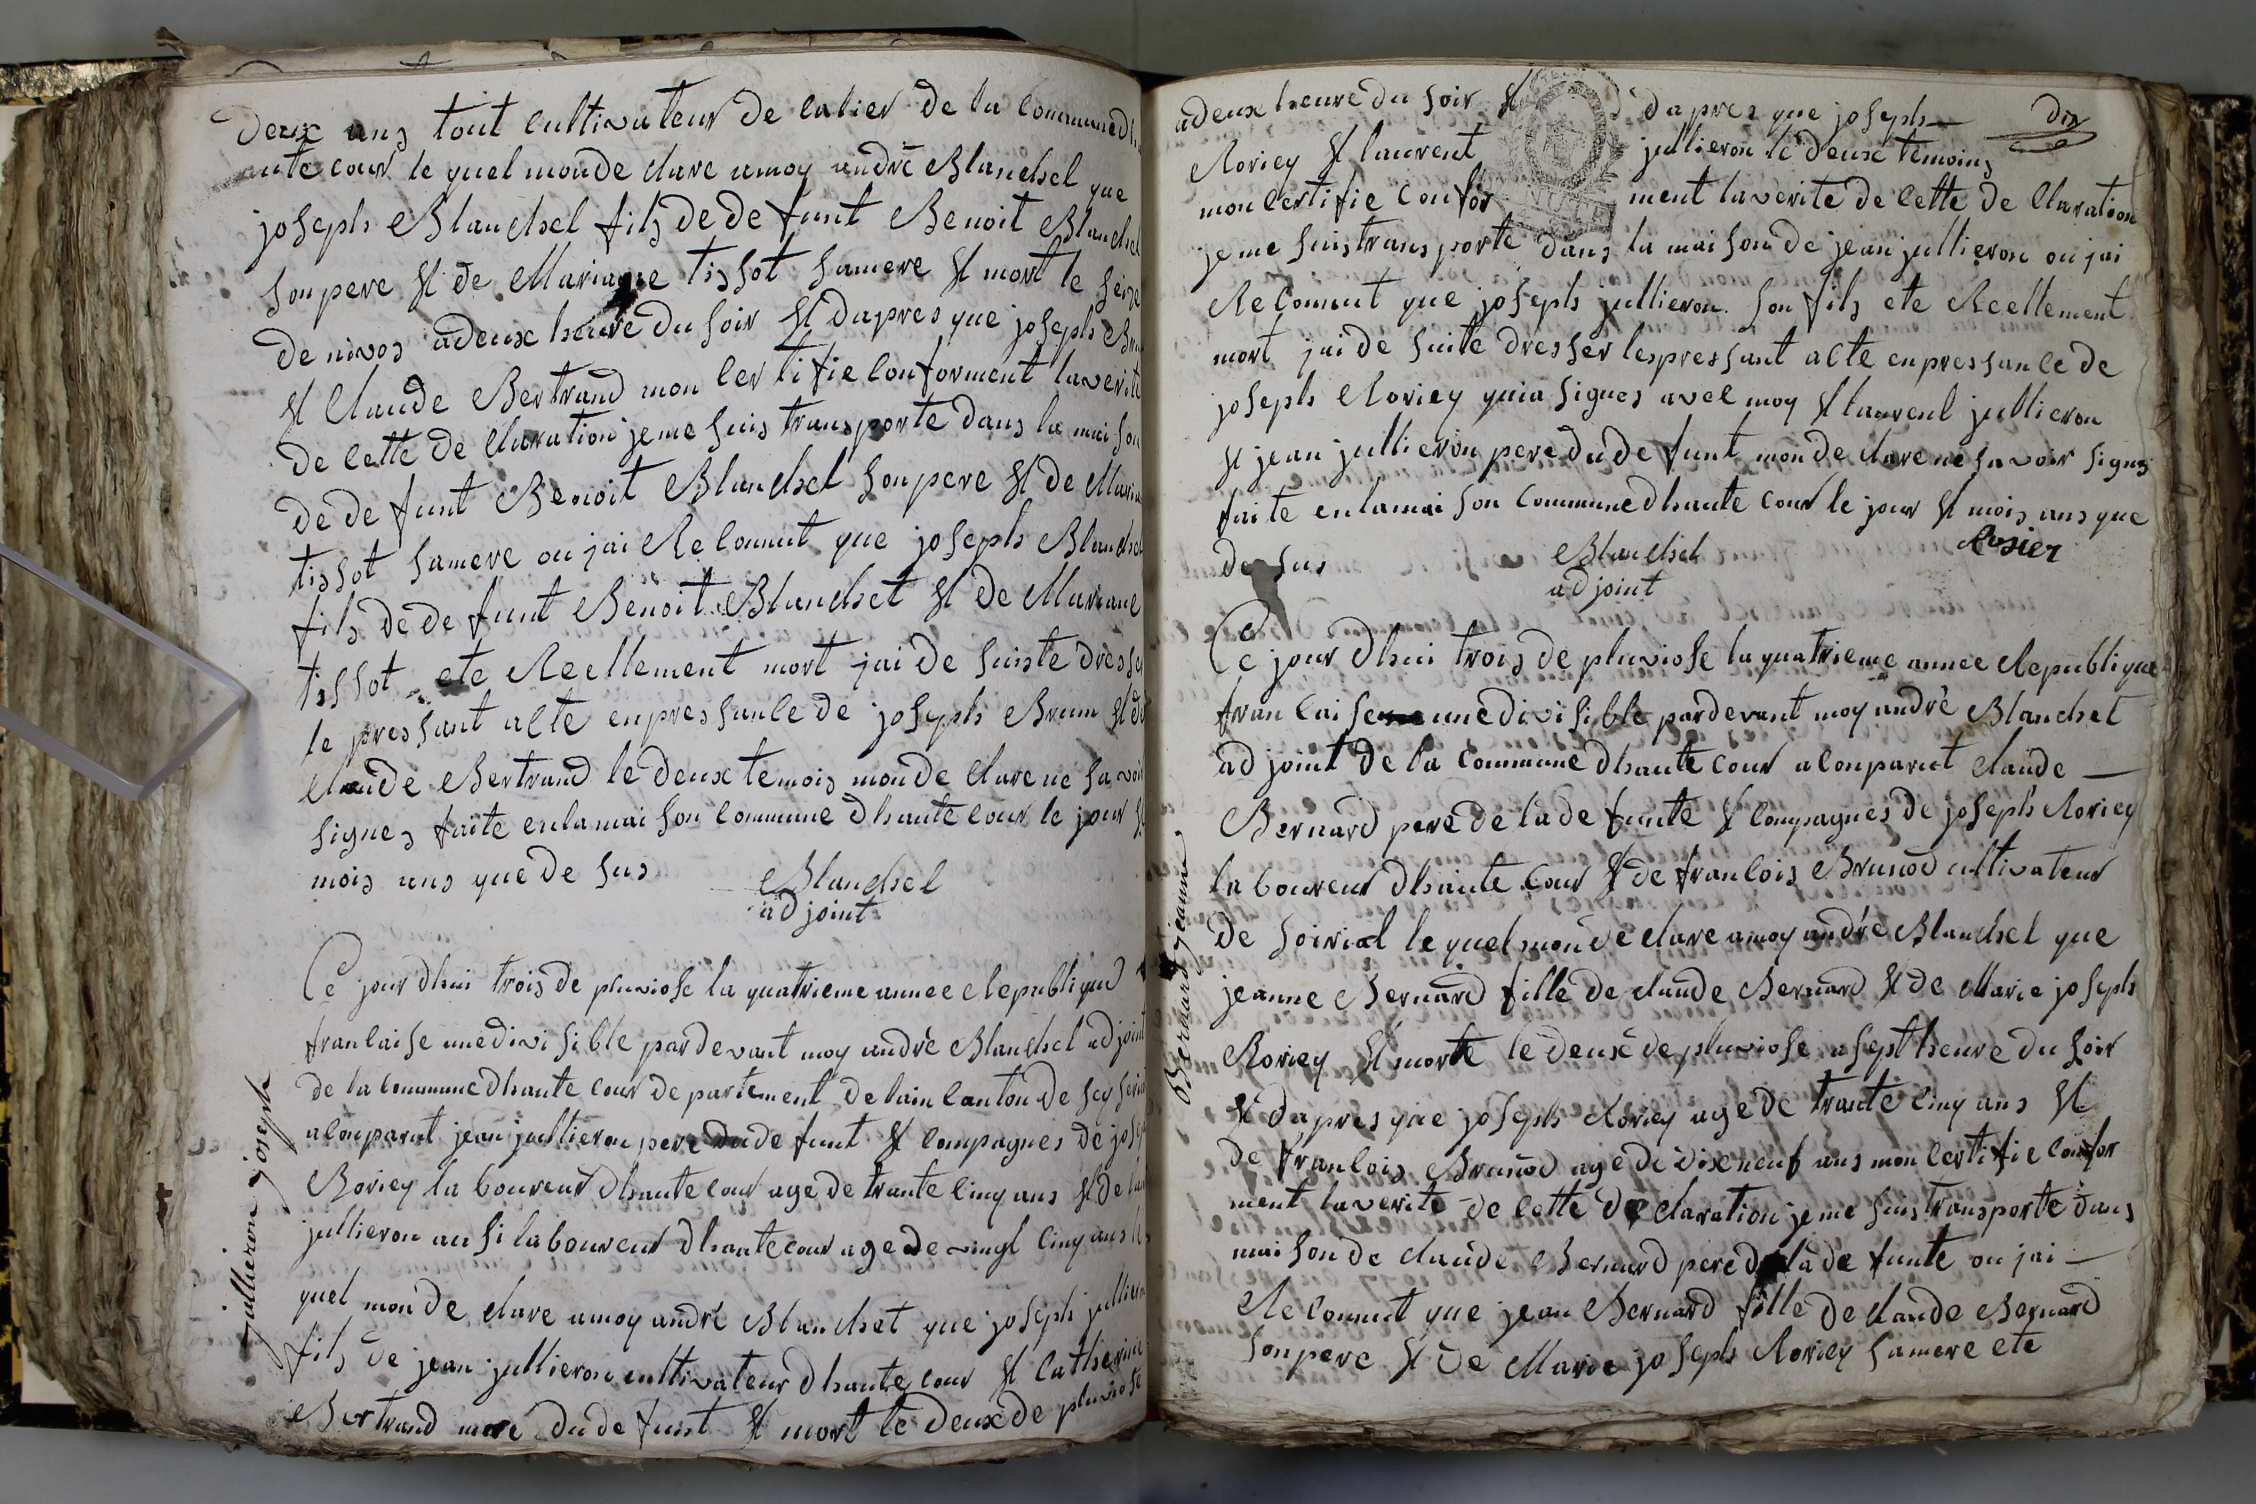 deux ans tout cultivateur de la commune
aute cour le quel mon de clare amoy andré Blanchet que
joseph Blanchet fils de de funt Benoit Blanchet
son pere et de Mariane tissot sa mere et mort le seize
de nivos a deux heure du soir et dapres que joseph
et Claude Bertrand mon certifie conforment la verite
de cette de claration je me suis transporte dans la maison
de de funt Benoit Blanchet son pere et de
tissot sa mere ou jai Reconnut que joseph Blanchet
fils de de funt Benoit Blanchet et de Mariane
tissot ete Reellement mort jai de suiste dresse
le pressant acte en pressance de joseph Brun et de
claude Bertrand le deux temois mon de clare ne savoir
signes faite en la maison commune dhaute cour le jour et
mois ans que de sus
Blanchet
adjoint
Ce jour dhui trois de pluviose la quatrieme annee Republique
francaise une divisible par devant moy andré Blanchet adjoint
de la commune dhaute cour de partement de lain canton de
a conparut jean jullieron pere du de funt et conpagnes de joseph
Roriey laboureur dhaute cour age de trante cinq ans et de
jullieron ausi laboureur dhaute cour age de vingt cinq ans le
quel mon de clare amoy andré Blanchet que joseph jullieron
fils de jean jullieron cultivateur dhaute cour et catherine
Bertrand mere du de funt et mort le deux de pluviose
jullieron joseph
dix
a deux heure du soir et dapres que joseph
Roriey et laurent jullieron le deux temoins
mon certifie confor ment la verite de cette de claration
je me suis transporte dans la maison de jean jullieron ou jai
Reconnut que joseph jullieron son fils ete Reellement
mort jai de suite dresser les pressant acte en pressance de
joseph Roriey qui a signes avec moy et laurent jullieron
et jean jullieron pere du de funt mon de clare ne savoir signes
faite en la maison commune dhaute cour le jour et mois ans que
de sus
Blanchet
adjoint
Rosier
Ce jour dhui trois de pluviose la quatrieme annee Republique
francaise une divisible par devant moy andré Blanchet
adjoint de la commune dhaute cour a conparut claude
Bernard pere de la de funte et conpagnes de joseph Roriey
laboureur dhaute cour et de francois Brunod cultivateur
de soiriat le quel mon de clare amoy andré Blanchet que
jeanne Bernard fille de claude Bernard et de Marie joseph
Roriey et morte le deux de pluviose a sept heure du soir
et dapres que joseph Roriey age de trante cinq ans et
de francois Brunod age de dix neuf ans mon certifie confor
ment la verite de cette de claration je me suis transporte dans
maison de claude Bernard pere de la de funte ou jai
Reconnut que jean Bernard fille de claude Bernard
son pere et de Marie joseph Roriey sa mere ete
Bernard jeanne